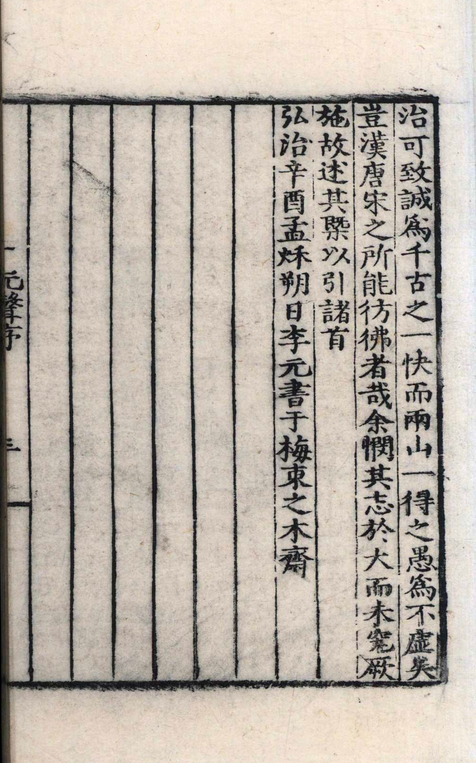 治可致誠爲千古之一快而兩山一得之愚爲不虛矣
豈漢唐宋之所能彷彿者哉余憫其志於大而未究厥
施故述其槩以引諸首
弘治辛酉孟秌朔日李元書于梅東之木齋
元聲序
三